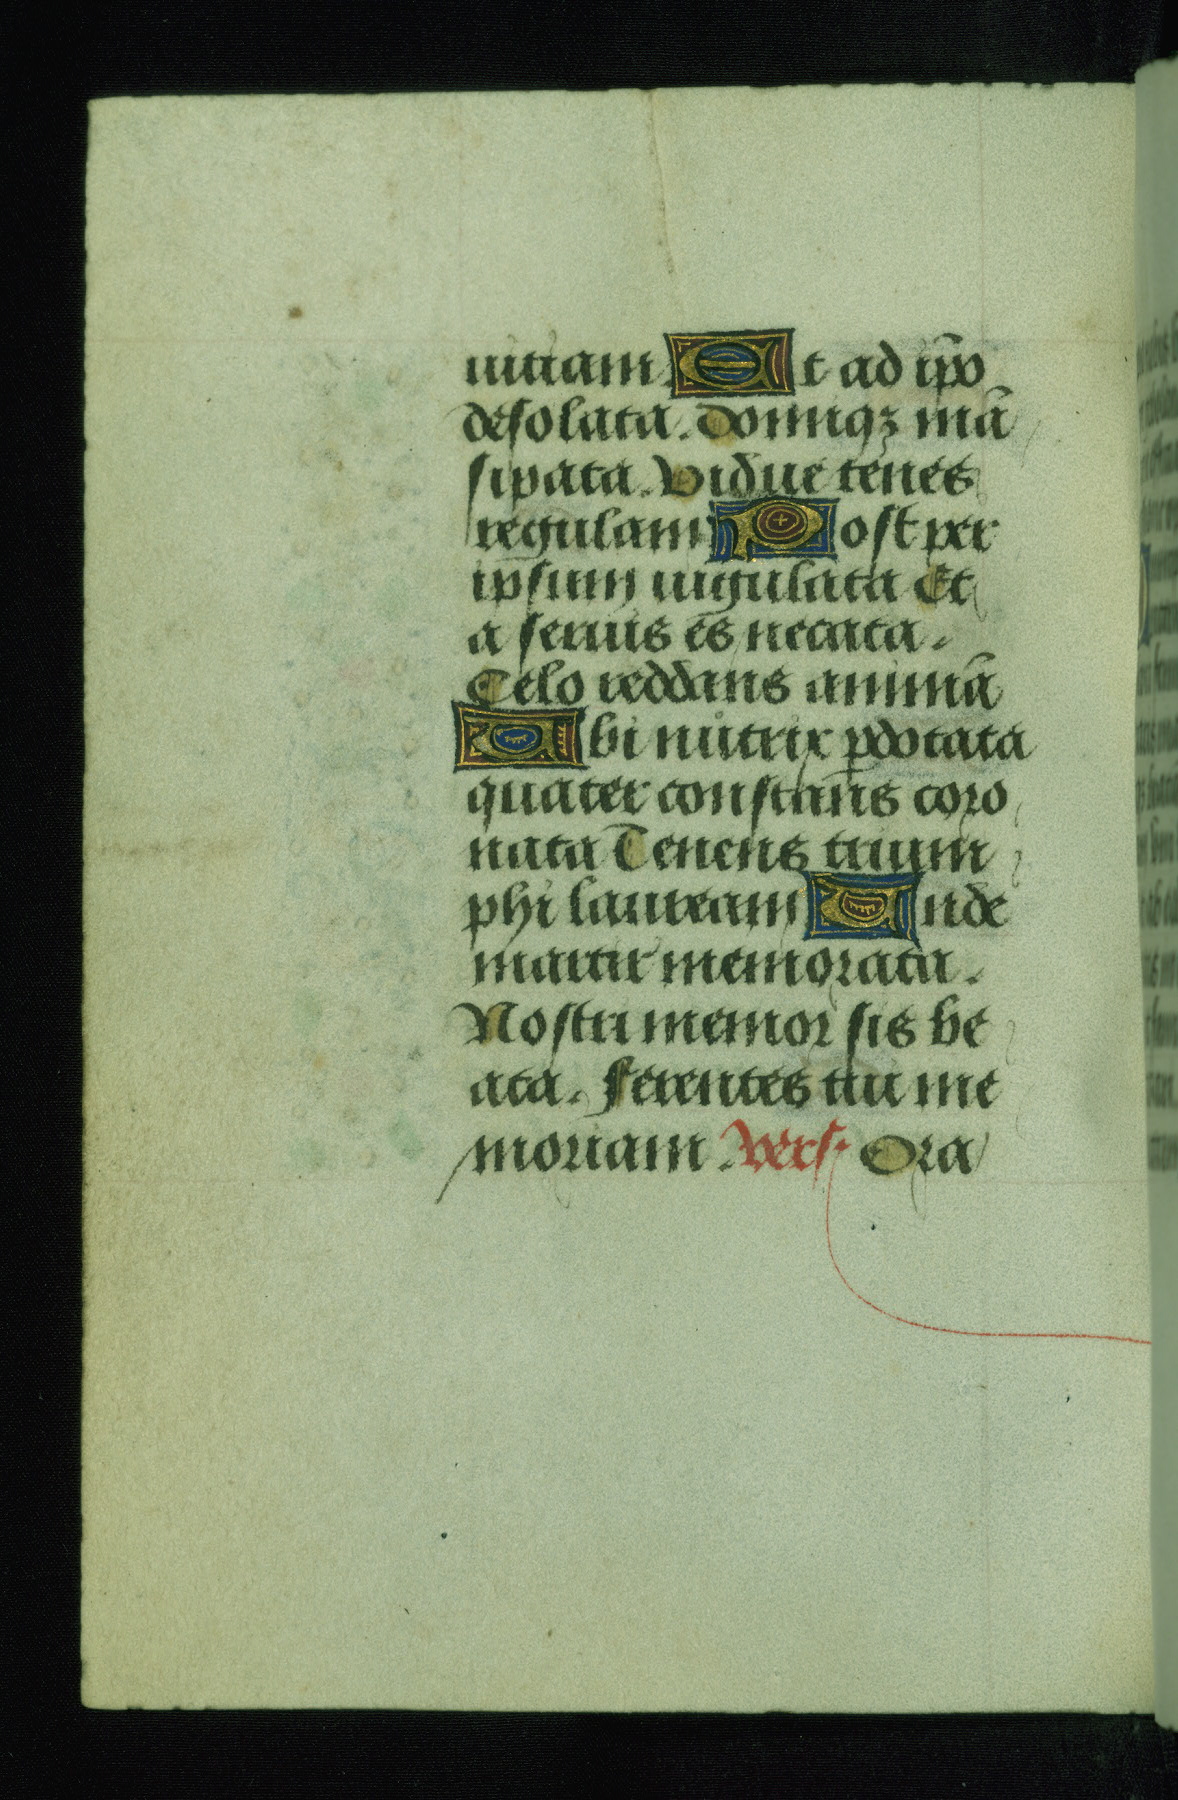 uitiam Et ad ip̄o
desolata. Domiq3 mā
sipata. Vidue tenes
regulam Post per
ipsum iugulata Et
a seruis es necata.
Celo reddans animā
Ubi nutrix pdotata
quater constans coro
nata Tenens trium
phi lauream Unde
martir memorata.
Nostri memor sis be
ata. Ferentes tui me
moriam. Vers. Ora